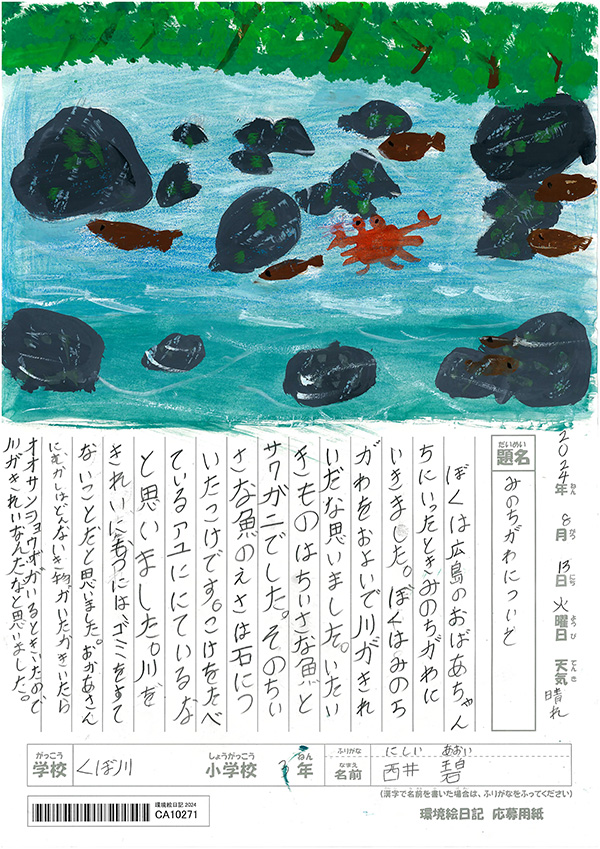 2024年 8月 13日 火曜日 天気 晴れ
ねん がつ にち ようび てんき
だいめい
題名
みのちがわについて
ぼくは広島のおばあちゃん
ちにいったときみのちがわに
いきました。ぼくはみのち
がわをおよいで川がきれ
いだな思いました。いたい
きものはちいさな魚と
サワガニでした。そのちい
さな魚のえさは石につ
いたこけです。こけをたべ
ているアユににているな
と思いました。川を
きれいにたもつにはゴミをすて
ないことだと思いました。おかあさん
にむかしはどんないき物がいたかきいたら
オオサンショウウオがいるときいたので
川がきれいなんだなと思いました。
がっこう しょうがっこう ねん ふりがな にしい あおい
学校 くぼ川 小学校 3年 なまえ 名前 西井 碧
(漢字で名前を書いた場合は、ふりがなをふってください)
環境絵日記 2024
CA10271
環境絵日記 応募用紙